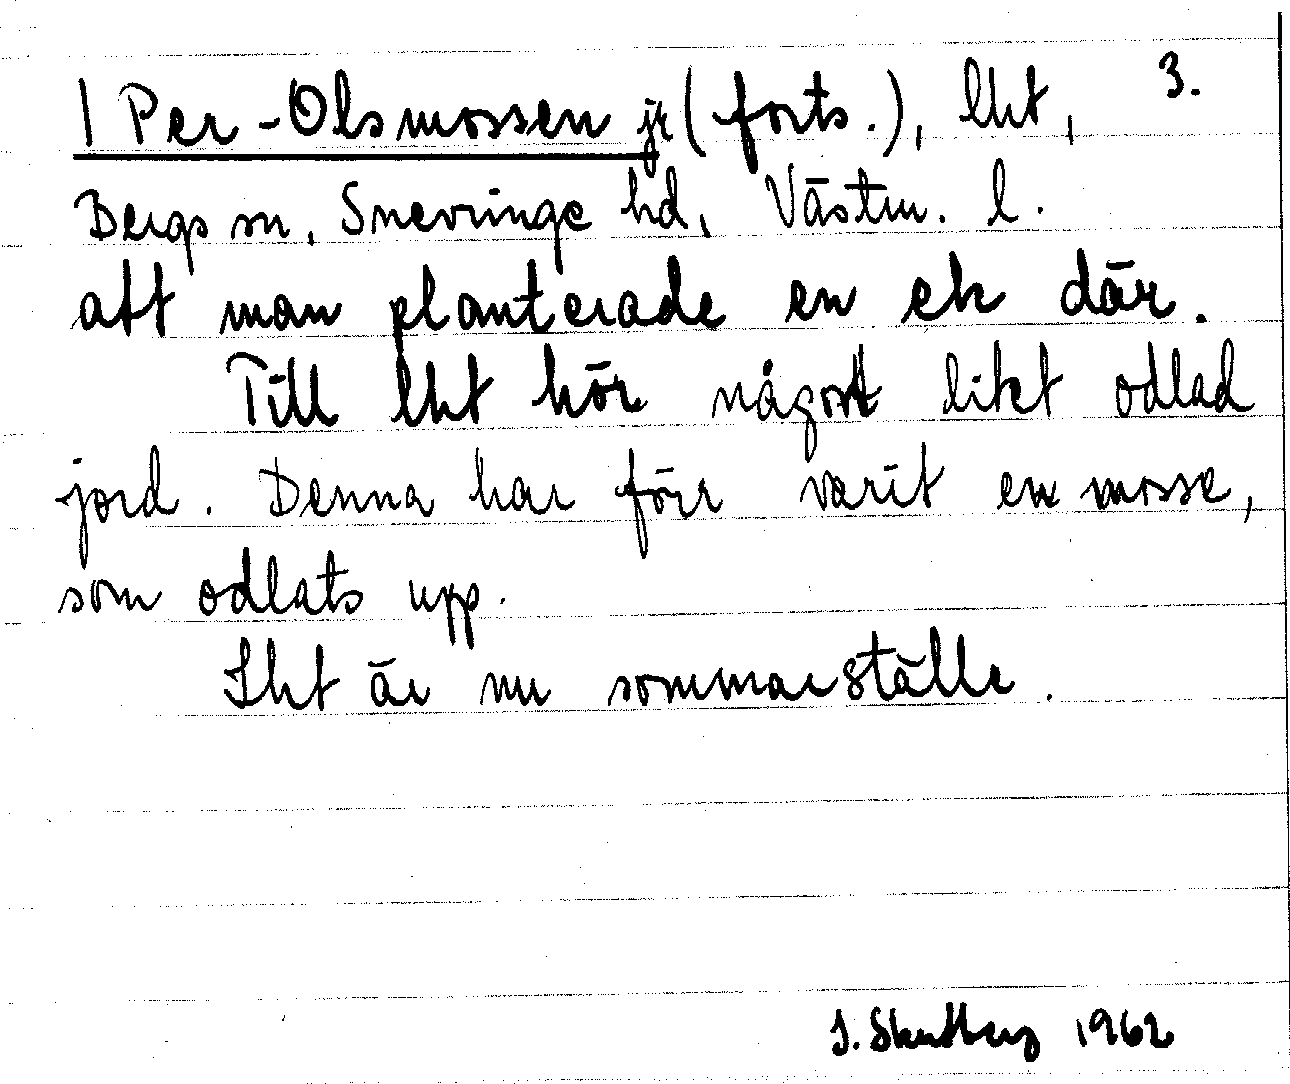 1 Per-Olsmossen jr (forts.), lht, 3.
Bergs sn, Snevringe hd, Västm. l.
att man planterade en ek där.
Till lht hör något litet odlad
jord. Denna har förr varit en mosse,
som odlats upp.
Lht är nu sommarställe.
1962